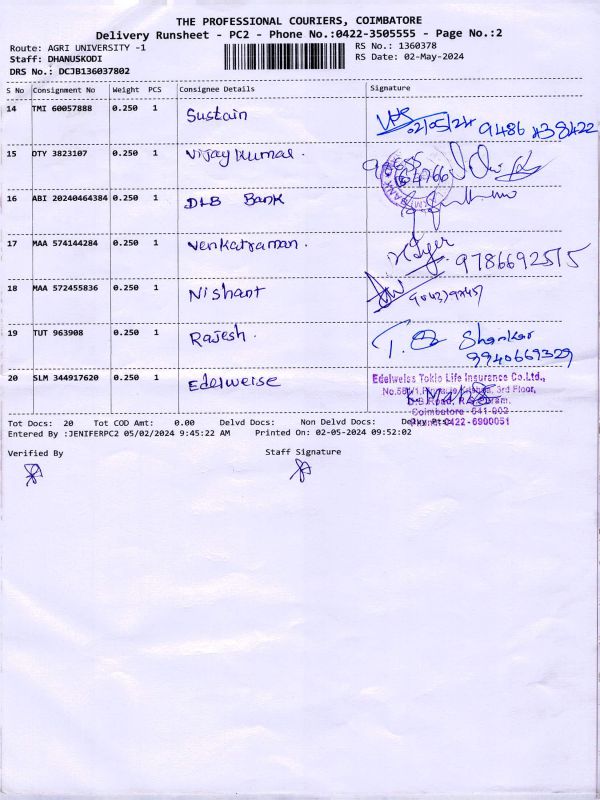 THE PROFESSIONAL COURIERS, COIMBATORE
Delivery Runsheet - PC2 - Phone No.:0422-3505555 - Page No.:2
Route: AGRI UNIVERSITY -1 RS No.: 1360378
Staff: DHANUSKODI RS Date: 02-May-2024
DRS No.: DCJB136037802
S No Consignment No Weight PCS Consignee Details Signature
14 TMI 60057888 0.250 1 Sustain 02/05/24
15 DTY 3823107 0.250 1 Vijay kumar.
16 ABI 20240464384 0.250 1 DLB Bank
17 MAA 574144284 0.250 1 Venkatraman. 9786692515
18 MAA 572455836 0.250 1 Nishant
19 TUT 963908 0.250 1 Rajesh. T. Shankar
9940669329
20 SLM 344917620 0.250 1 Edelweise Edelweiss Tokio Life Insurance Co.Ltd.,
3rd Floor,
D.B.Road, R.S.Puram,
Coimbatore - 641 002
Phone: 0422 - 6900051
Tot Docs: 20 Tot COD Amt: 0.00 Delvd Docs: Non Delvd Docs:
Entered By :JENIFERPC2 05/02/2024 9:45:22 AM Printed On: 02-05-2024 09:52:02
Verified By Staff Signature